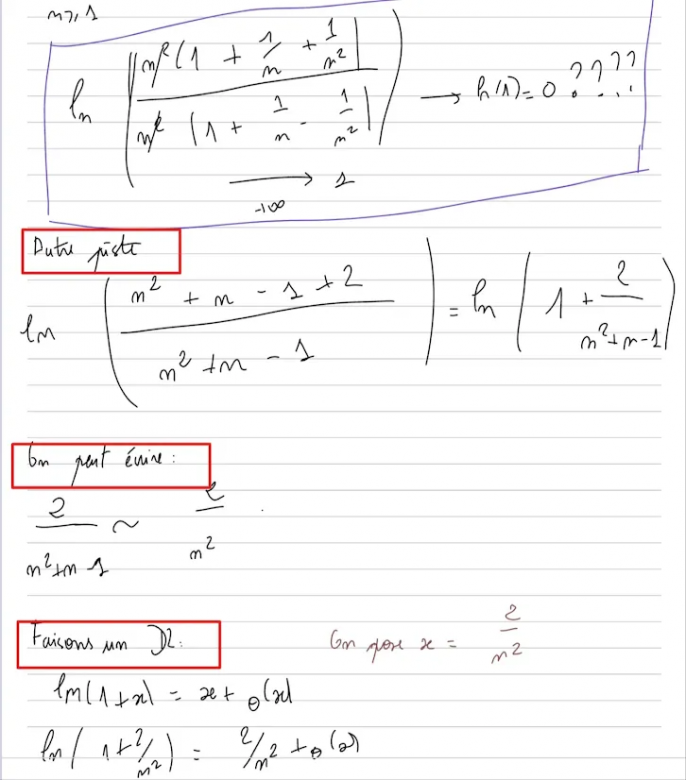 n ⩾ 1
ln ( |n²(1 + 1/n + 1/n²| / n² (1 + 1/n - 1/n²| ) → h(1) = 0 ????
→ 1
+∞
Autre piste
ln ( n² + n - 1 + 2 / n² + n - 1 ) = ln ( 1 + 2 / n² + n - 1 )
On peut écrire :
2 / n² + n - 1 ~ 2 / n²
Faisons un DL : On pose x = 2 / n²
ln(1 + x) = x + o(x)
ln( 1 + 2/n² ) = 2/n² + o(x)